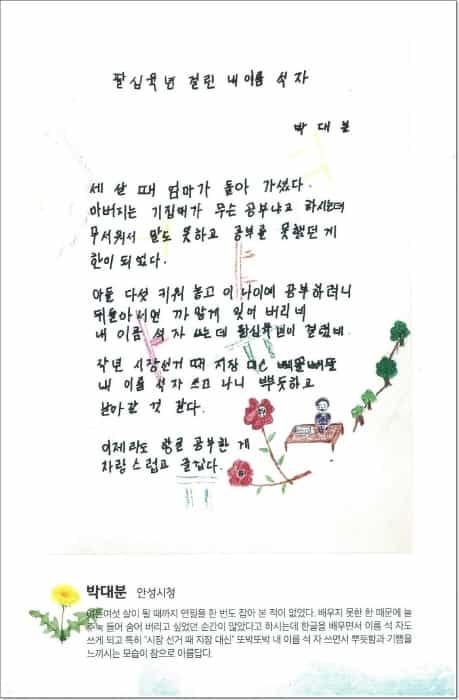 팔십육년 걸린 내 이름 석 자
박 대 분
세 살 때 엄마가 돌아 가셨다.
아버지는 기집애가 무슨 공부냐고 하시는데
무서워서 말도 못하고 공부를 못했던 게
한이 되었다.
아들 다섯 키워 놓고 이 나이에 공부하려니
뒤돌아서면 까맣게 잊어 버리네
내 이름 석 자 쓰는데 팔십육년이 걸렸네.
작년 시장선거 때 지장
내 이름 석 자 쓰고 나니 뿌듯하고
날아갈 것 같다.
이제라도 한글 공부한 게
자랑스럽고 즐겁다.
박대분 안성시청
여든여섯 살이 될 때까지 연필을 한 번도 잡아 본 적이 없었다. 배우지 못한 한 때문에 늘
주눅 들어 숨어 버리고 싶었던 순간이 많았다고 하시는데 한글을 배우면서 이름 석 자도
쓰게 되고 특히 "시장 선거 때 지장 대신" 또박또박 내 이름 석 자 쓰면서 뿌듯함과 기쁨을
느끼시는 모습이 참으로 아름답다.